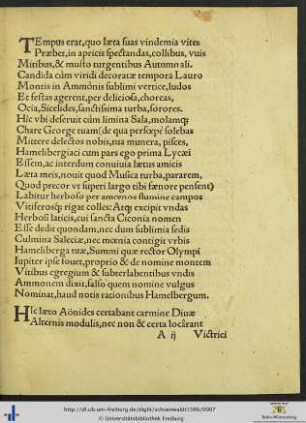 TEmpus erat, quo læta suas vindemia vites
Præbet, in apricis spectandas, collibus, vuis
Mitibus, & musto turgentibus Autumnali.
Candida cùm viridi decoratæ tempora Lauro
Montis in Ammônis sublimi vertice, ludos
Et festas agerent, per deliciosa, choreas,
Ocia, Sicelides, sanctissima turba, sorores.
Hîc vbi deseruit cùm limina Sala, molamq́;
Chare George tuam (de qua persæpè solebas
Mittere delectos nobis, tua munera, pisces,
Hamelibergiaci cum pars ego prima Lycæi
Essem, ac interdum conuiuia lætus amicis
Læta meis, nouit quod Musica turba, pararem,
Quod precor vt superi largo tibi fœnore pensent)
Labitur herboso per amœnos flumine campos
Vitiferosq́; rigat colles: Atq; excipit vndas
Herbosi laticis, cui sancta Ciconia nomen
Esse dedit quondam, nec dum sublimia sedis
Culmina Saleciæ, nec mœnia contigit vrbis
Hameliberga tuæ, Summi quæ rector Olympi
Iupiter ipse iouet, proprio & de nomine montem
Vitibus egregium & subterlabentibus vndis
Ammonem dixit, falso quem nomine vulgus
Nominat, haud notis rationibus Hamelbergum.
HIc læto Aönides certabant carmine Diuæ
Alternis modulis, nec non & certa locârant
A ij Victrici
http://dl.ub.uni-freiburg.de/diglit/schoenwaldt1586/0007
© Universitätsbibliothek Freiburg
Baden-Württemberg